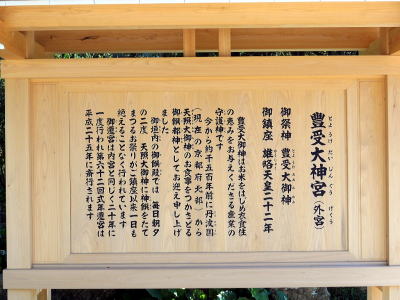 豊受大神宮（外宮）
とようけだいじんぐう げくう
御祭神 豊受大御神
御鎮座 雄略天皇二十二年
豊受大御神はお米をはじめ衣食住
の恵みをお与えくださる産業の
守護神です
今から約千五百年前に丹波国
（現在の京都府北部）から
天照大御神のお食事をつかさどる
御饌都神としてお迎え申し上げ
ました
御垣内の御饌殿では毎日朝夕
の二度 天照大御神に神饌をたて
まつるお祭りがご鎮座以来一日も
絶えることなく行われています
御遷宮は内宮と同じく二十年に
一度行われ第六十二回式年遷宮は
平成二十五年に斎行されます